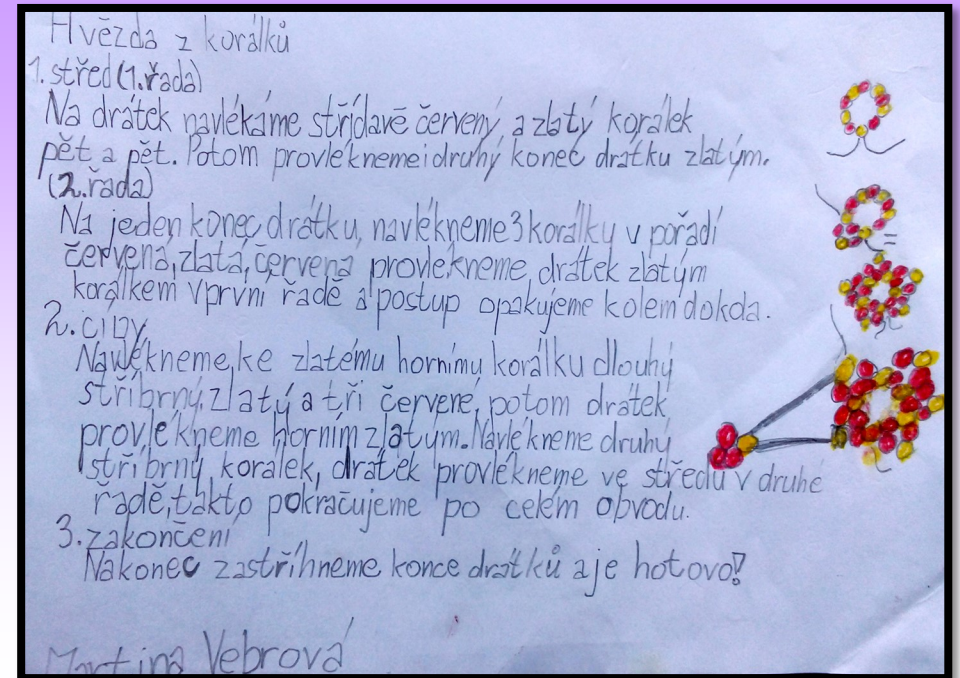 Hvězda z korálků
1. střed (1. řada)
Na drátek navlékáme střídavě červený, a zlatý korálek
pět a pět. Potom provlékneme i druhý konec drátku zlatým.
(2. řada)
Na jeden konec drátku, navlékneme 3 korálky v pořadí
červená, zlatá, červená provlékneme, drátek zlatým
korálkem v první řadě a postup opakujeme kolem dokola.
2. cípy
Navlékneme, ke zlatému hornímu korálku dlouhý
stříbrný, zlatý a tři červené, potom drátek
provlékneme horním zlatým. Navlékneme druhý
stříbrný korálek, drátek provlékneme ve středu v druhé
řadě, takto pokračujeme po celém obvodu.
3. zakončení
Nakonec zastřihneme konce drátků a je hotovo!
Martina Vebrová